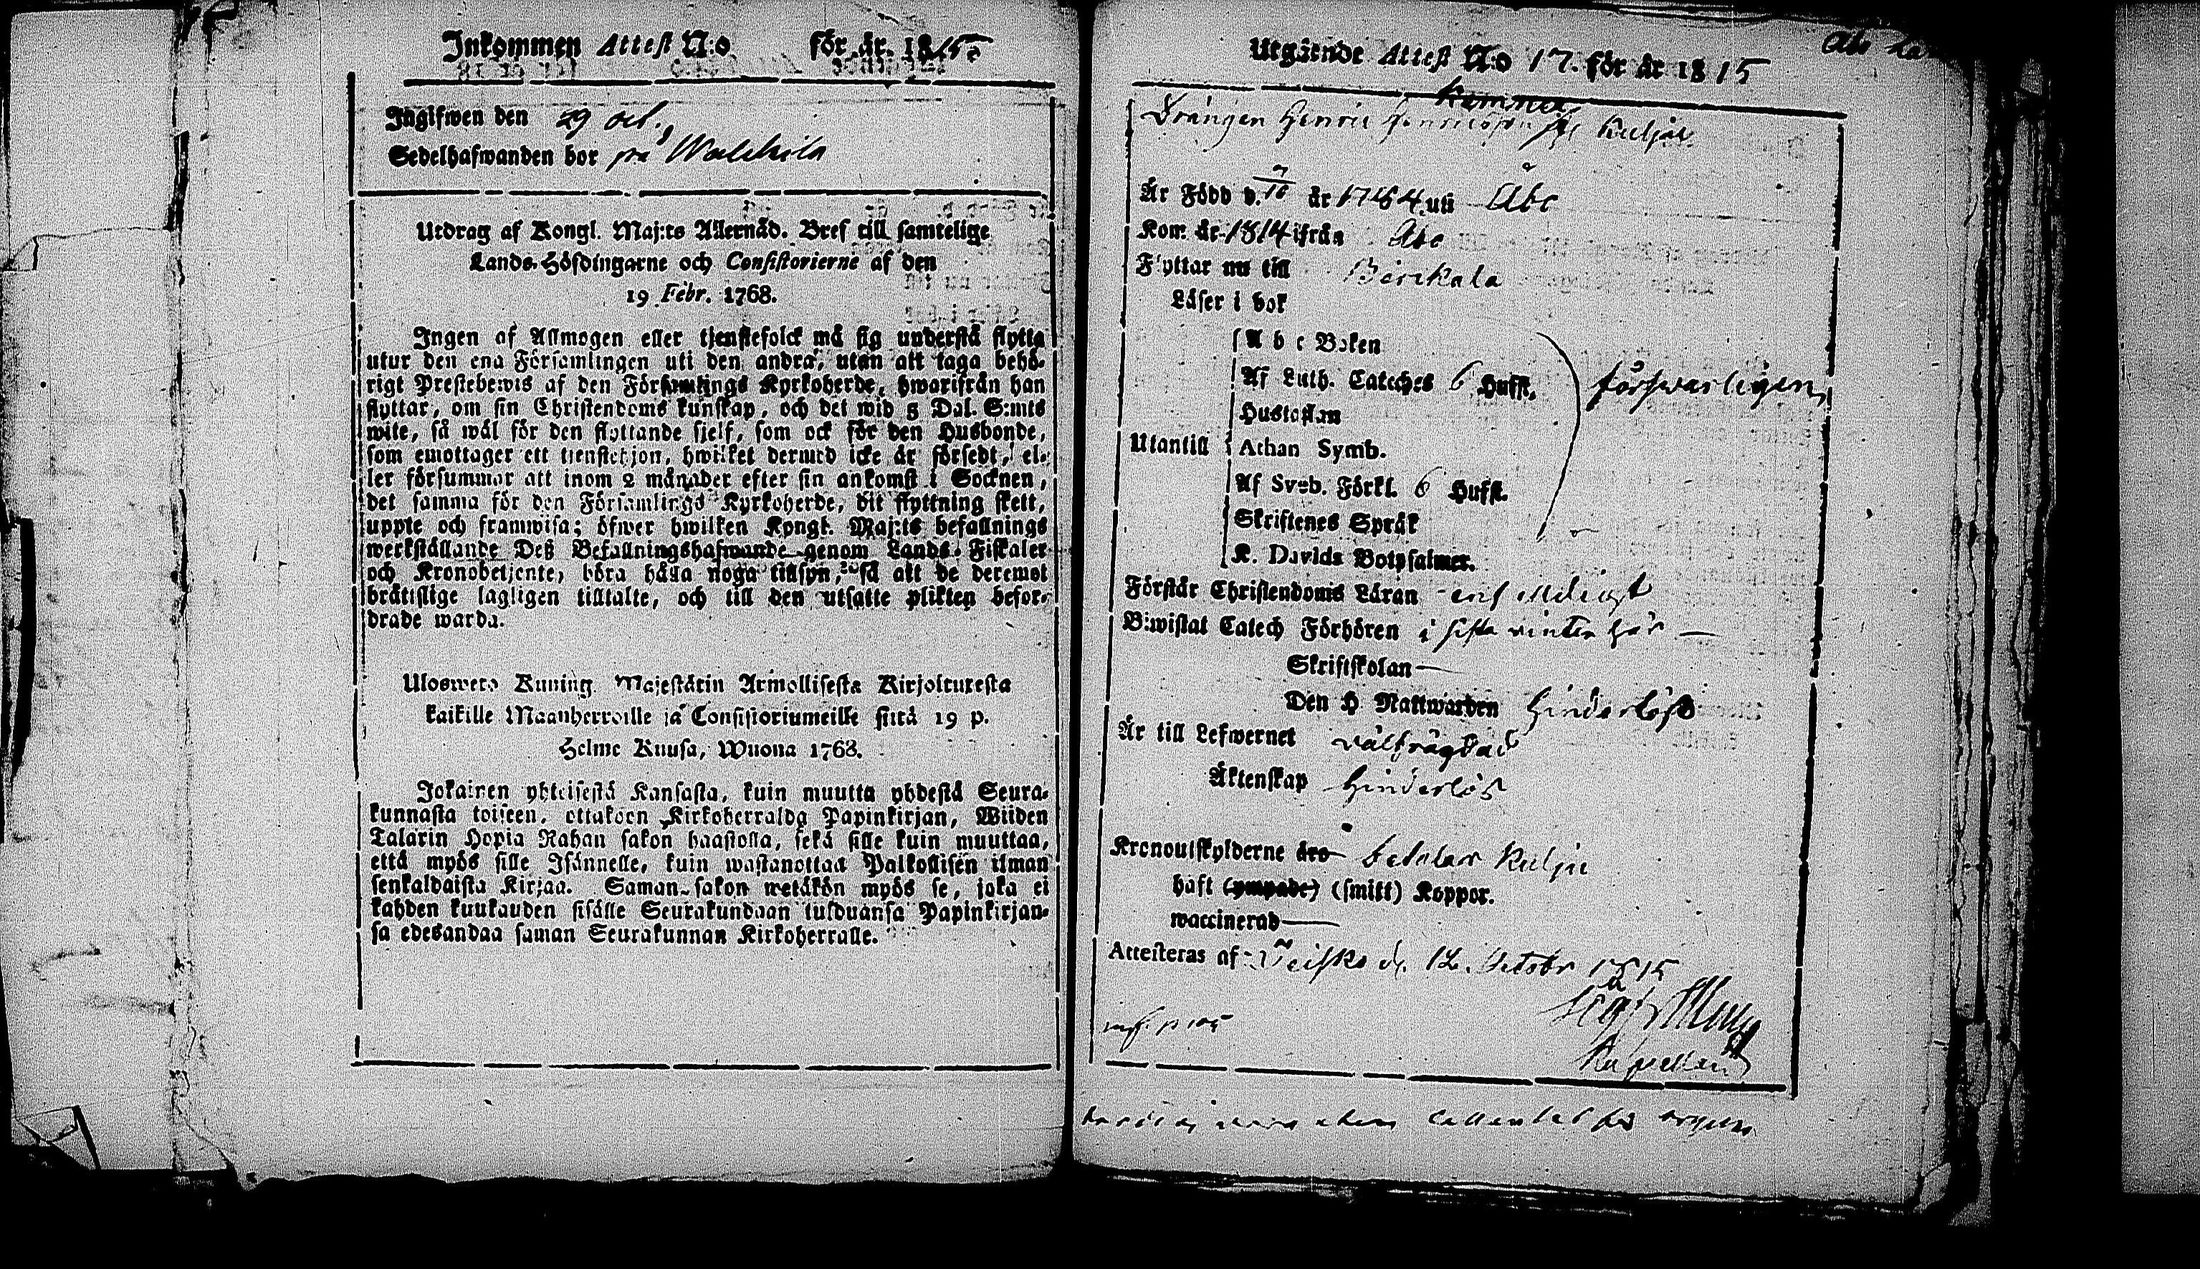 Inkommen Attest N:o för år 1815.
Ingifwen den 29 oct.
Sedelhafwanden bor på Walkila
Utdrag af Kongl. Maj:ts Allernåd. Bref till samtelige
Lands-Höfdingarne och Consistorierne af den
19 Febr. 1768.
Ingen af Allmogen eller tjenstefolck må sig understå flytta
utur den ena Församlingen uti den andra, utan att taga behö-
rigt Prestebewis af den Församlings Kyrkoherde, hwarifrån han
flyttar, om sin Christendoms kunskap, och det wid 5 Dal. S:mts
wite, så wäl för den flyttande sjelf, som ock för den Husbonde,
som emottager ett tienstehjon, hwilket dermed icke är försedt, el-
ler försummar att inom 2 månader efter sin ankomst i Socknen,
det samma för den Församlings Kyrkoherde, dit flyttning skett,
uppte och framwisa; öfwer hwilken Kongl. Maj:ts befallnings
werkställande Deß Befallningshafwande genom Lands-Fiskaler
och Kronobetjente, böra hålla noga tillsyn, så att de deremot
brätislige lagligen tilltalte, och till den utsatte plikten befor-
drade warda.
Uloswero Kuning. Majestätin Armollisesta Kirjoituxesta
kaikille Maanherroille ja Consistoriumeille siitä 19 p.
Helme Kuusa, Wuona 1768.
Jokainen yhteisestä Kansasta, kuin muutta yhdestä Seura-
kunnasta toiseen, ottakoon Kirkoherralda Papinkirjan, Wiiden
Talarin Hopia Rahan sakon haastolla, sekä sille kuin muuttaa,
että myös sille Isännelle, kuin wastanottaa Palkollisen ilman
senkaldaista Kirjaa. Saman sakon wetäkön myös se, joka ei
kahden kuukauden sisälle Seurakundaan tulduansa Papinkirjan-
sa edesandaa saman Seurakunnan Kirkoherralle.
Utgående Attest N:o 17. för år 1815
Drängen Henric Kuljus
Är Född d. 7/10 år 1764 uti Åbo
Kom år 1814 ifrån Åbo
Flyttar nu till Birckala
Läser i bok
A b c Boken
Af Luth. Cateches 6 Hufst. försvarligen
Hustaflan
Utantill Athan Symb.
Af Sveb. Förkl. 6 Hufst.
Skriftenes Språk
K. Davids Botpsalmer.
Förstår Christendoms Läran enfaldeligt
Biwistat Catech Förhören i sista vinter här
Skriftskolan
Den H Nattwarden hinderlöst
Är till Lefwernet välfrägdad
Äktenskap hinderlös
Kronoutskylderne äro betalar Kulju
haft (ympade) (smitt) Koppor.
waccinerad
Attesteras af Teisko d. 12. October 1815
Kapellan